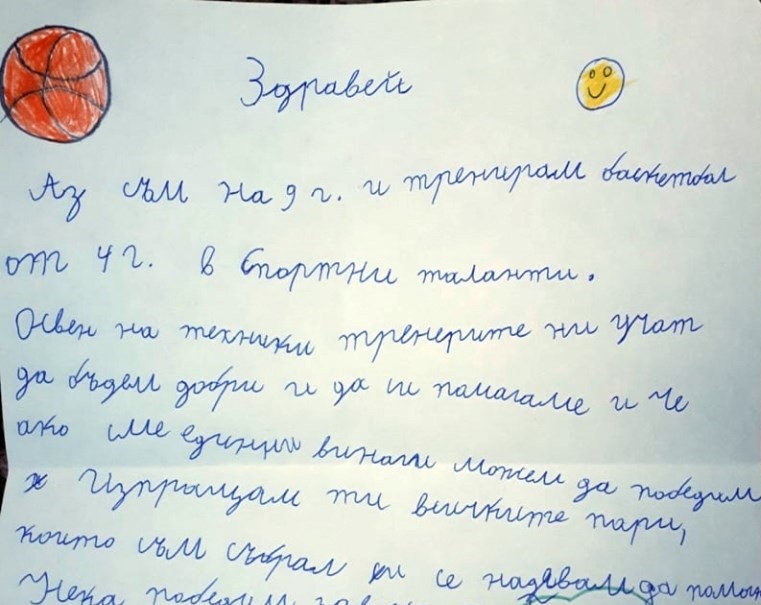 Здравей
Аз съм на 9 г. и тренирам баскетбол
от 4 г. в Спортни таланти.
Освен на техники тренерите ни учат
да бъдем добри и да си помагаме и че
ако сме единни винаги можем да победим
Изпращам ти всичките пари,
които съм събрал и се надявам да помогн
Нека победим